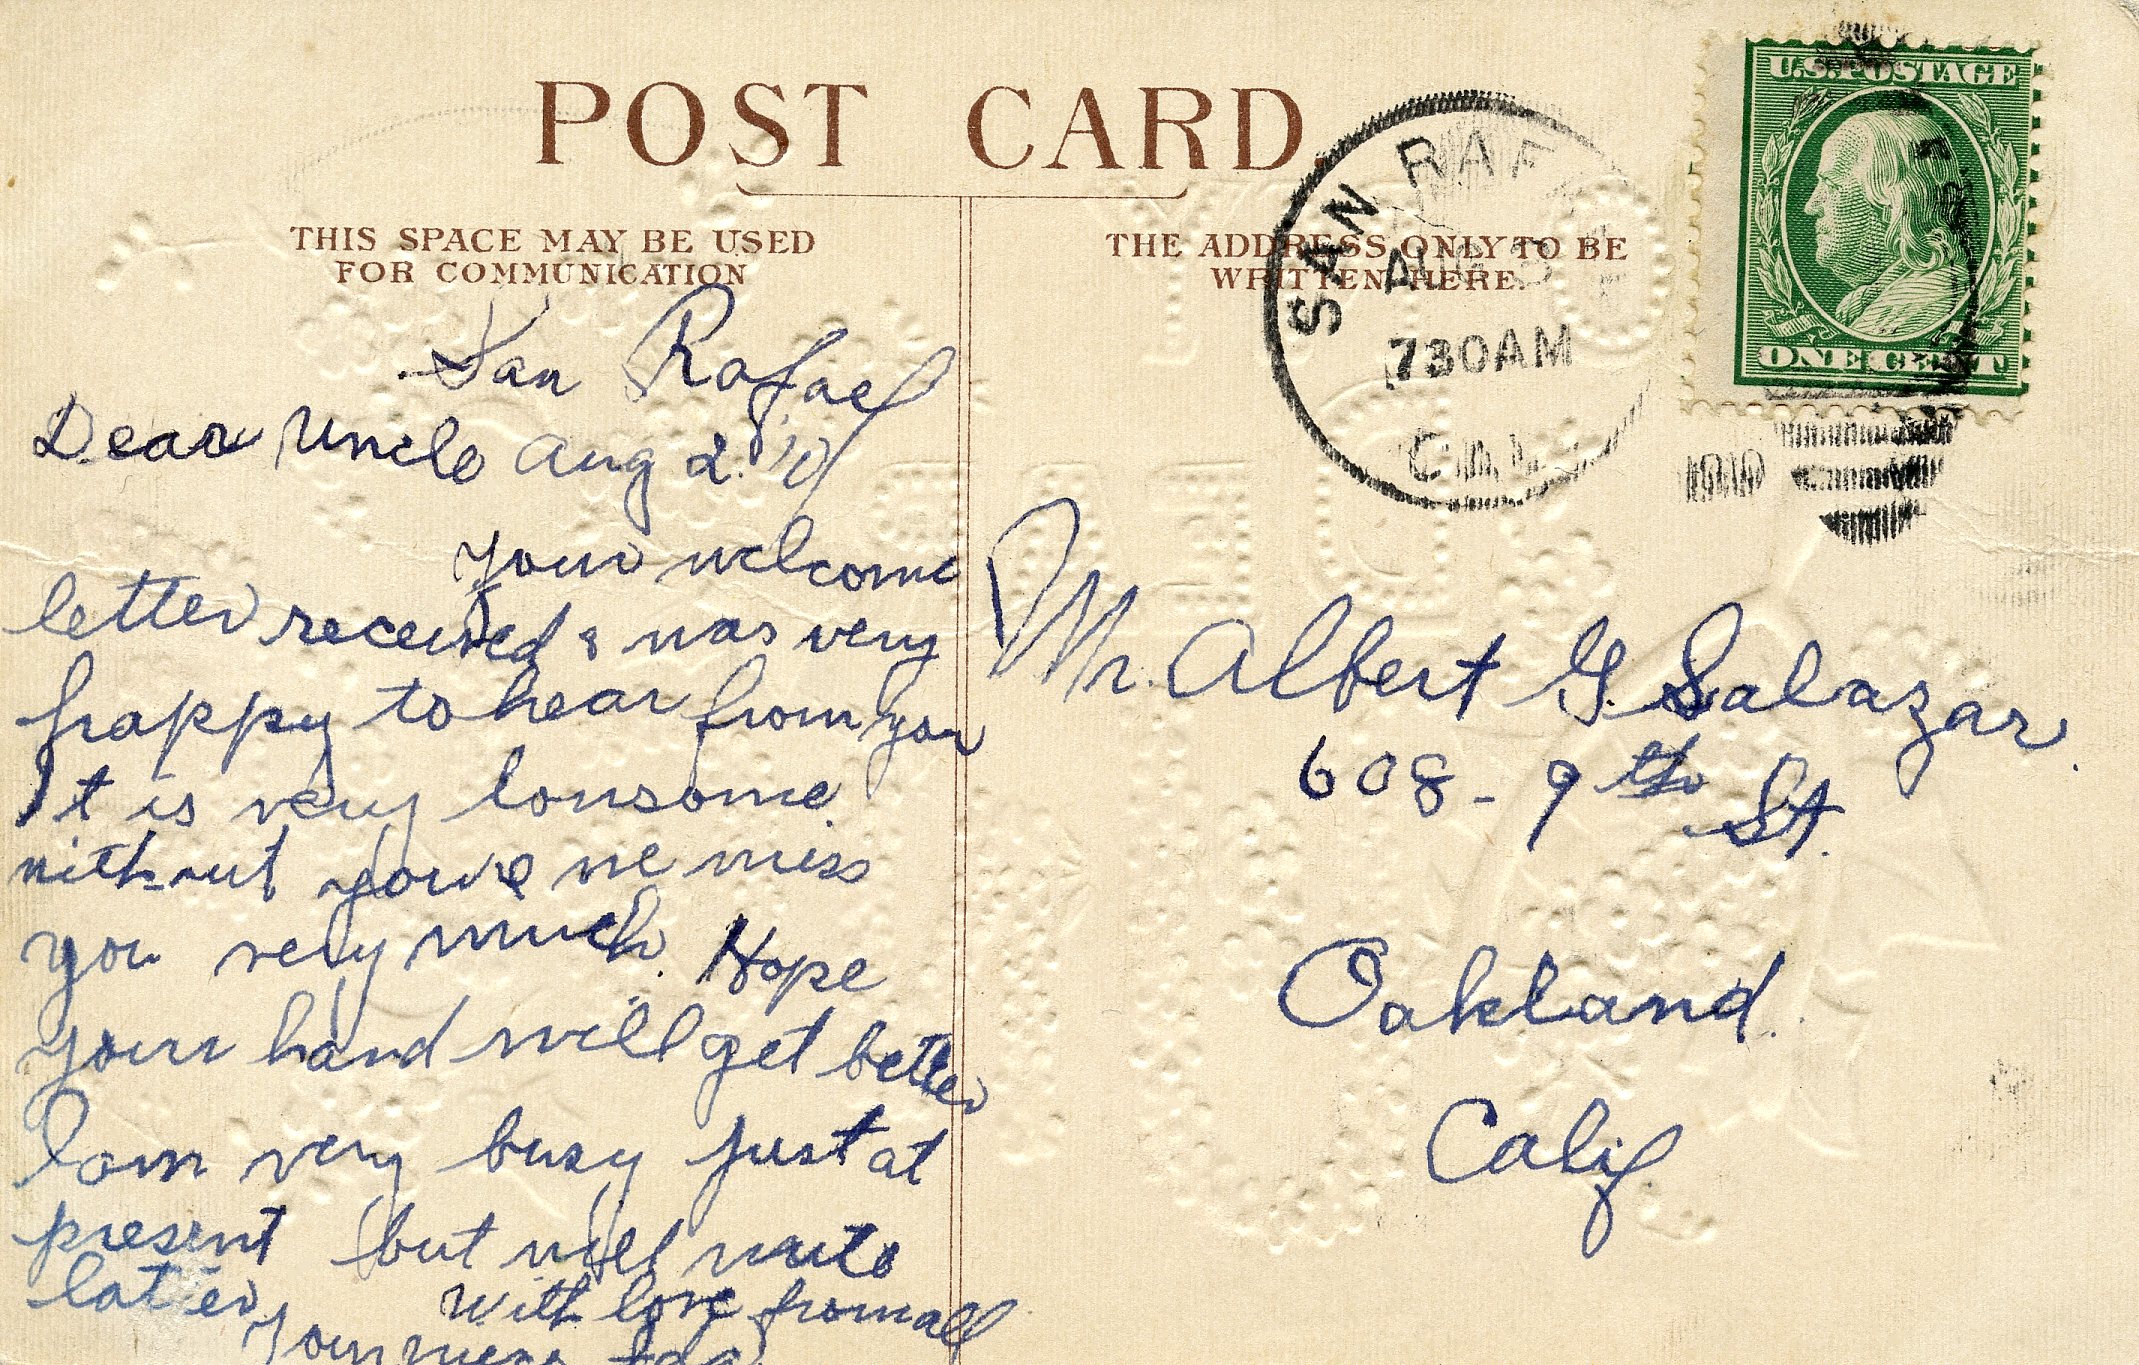 POST CARD.
THIS SPACE MAY BE USED
FOR COMMUNICATION
San Rafael
Dear Uncle Aug 2. '10
Your welcome
letter received & was very
happy to hear from you
It is very lonsome.
without you we miss
you very much. Hope
your hand will get better
I am very busy just at
present but will write
later,
With love from all
Your niece
THE ADDRESS ONLY TO BE
WRITTEN HERE.
SAN RAF
AUG
730AM
CAL
1910
U.S. POSTAGE
ONE CENT
Mr. Albert G. Salazar.
608 - 9th St.
Oakland.
Calif.